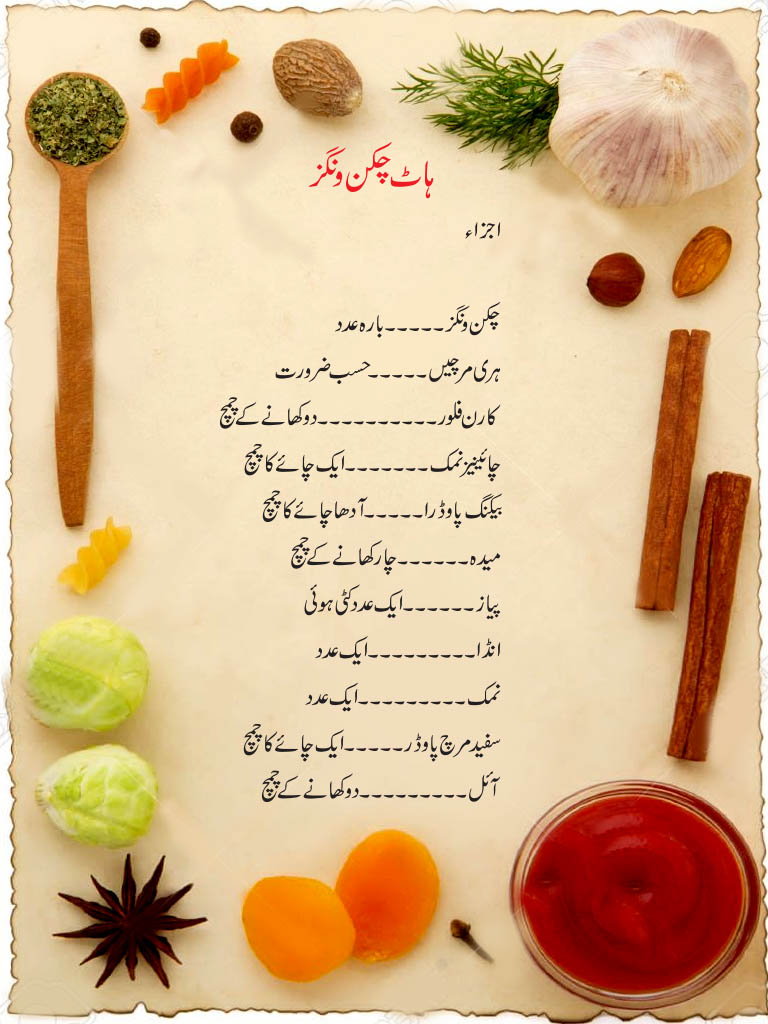 ہاٹ چکن ونگز
اجزاء
چکن ونگز۔۔۔۔۔بارہ عدد
ہری مرچیں۔۔۔۔۔حسب ضرورت
کارن فلور۔۔۔۔۔۔۔۔۔۔دو کھانے کے چمچ
چائینیز نمک۔۔۔۔۔۔۔ایک چائے کا چمچ
بیکنگ پاوڈرا۔۔۔۔۔آدھا چائے کا چمچ
میدہ۔۔۔۔۔۔چار کھانے کے چمچ
پیاز۔۔۔۔۔۔ایک عدد کٹی ہوئی
انڈا۔۔۔۔۔۔۔۔۔ایک عدد
نمک۔۔۔۔۔۔۔۔۔ایک عدد
سفید مرچ پاوڈر۔۔۔۔۔ایک چائے کا چمچ
آئل۔۔۔۔۔۔۔۔۔دو کھانے کے چمچ